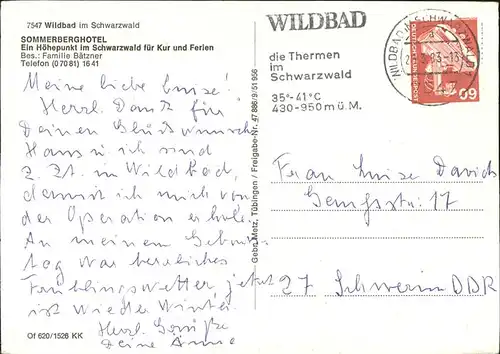 7547 Wildbad im Schwarzwald
SOMMERBERGHOTEL
Ein Höhepunkt im Schwarzwald für Kur und Ferien
Bes.: Familie Bätzner
Telefon (07081) 1641
Meine liebe Luise!
Herzl. Dank für
Deinen Glückwunsch
Hans u. ich sind
z. Zt. in Wildbad,
damit ich mich von
der Operation erhole.
An meinem Geburts-
tag war herrliches
Frühlingswetter, jetzt
ist wieder Winter.
Herzl. Grüße
Deine Änne
Of 620/1526 KK
Gebr. Metz, Tübingen / Freigabe-Nr. 47886/9/51956
WILDBAD
die Thermen
im
Schwarzwald
35°-41°C
430-950 m ü. M.
WILDBAD I. SCHWARZWALD
a
60
Frau Luise David
Gempstr. 17
27 Schwerin DDR